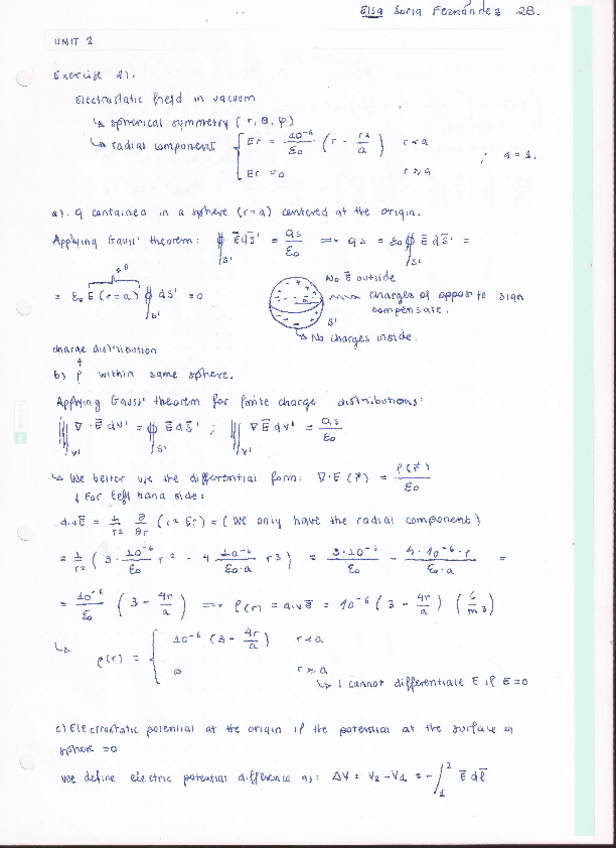 Elsa Soria Fernández 2B.
UNIT 2
Exercise 21.
Electrostatic field in vacuum
↳ spherical symmetry (r, θ, φ)
↳ radial component { Er = 10⁻⁶/ε₀ · (r − r²/a) r < a
Er = 0 r ≥ a ; a = 1.
a). q contained in a sphere (r=a) centered at the origin.
Applying Gauss' theorem: ∮S' E̅ dS̅' = qs/ε₀ ⟹ qs = ε₀ ∮S' E̅ dS̅' =
= ε₀ E(r=a) ∮S' dS' = 0
=0
No E̅ outside
charges of opposite sign
compensate.
S'
↳ No charges inside.
charge distribution
b) ρ within same sphere.
Applying Gauss' theorem for finite charge distributions:
∭V' ∇·E̅ dV' = ∮S' E̅ dS̅' ; ∭V' ∇E̅ dV' = qs/ε₀
↳ We better use the differential form: ∇·E(r̅) = ρ(r̅)/ε₀
↓ For left hand side:
div E̅ = 1/r² ∂/∂r (r² Er) = (We only have the radial component)
= 1/r² (3 · 10⁻⁶/ε₀ r² − 4 10⁻⁶/ε₀·a r³) = 3·10⁻⁶/ε₀ − 4·10⁻⁶·r/ε₀·a =
= 10⁻⁶/ε₀ (3 − 4r/a) ⟹ ρ(r) = div E̅ = 10⁻⁶ (3 − 4r/a) (C/m3)
↳ ρ(r) = { 10⁻⁶ (3 − 4r/a) r < a
0 r ≥ a
↳ I cannot differentiate E if E=0
c) Electrostatic potential at the origin if the potential at the surface
sphere =0
We define electric potential difference as: ΔV = V₂ − V₁ = −∫₁² E̅ dl̅